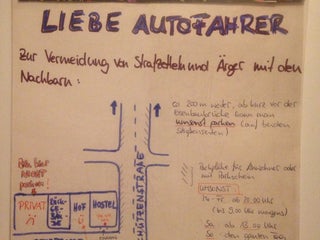 LIEBE AUTOFAHRER
Zur Vermeidung von Strafzetteln und Ärger mit den
Nachbarn:
ca 200m weiter, ab kurz vor der
Eisenbahnbrücke kann man
umsonst parken (auf beiden
Straßenseiten)
Bitte hier
NICHT
parken!
PRIVAT
HOF
HOSTEL
SCHÜTZENSTRAẞE
Parkplätze für Anwohner oder
mit Parkschein
UMSONST:
(bis 9.00 Uhr morgens)
Sa ab 13.00
So den ganzen Tag